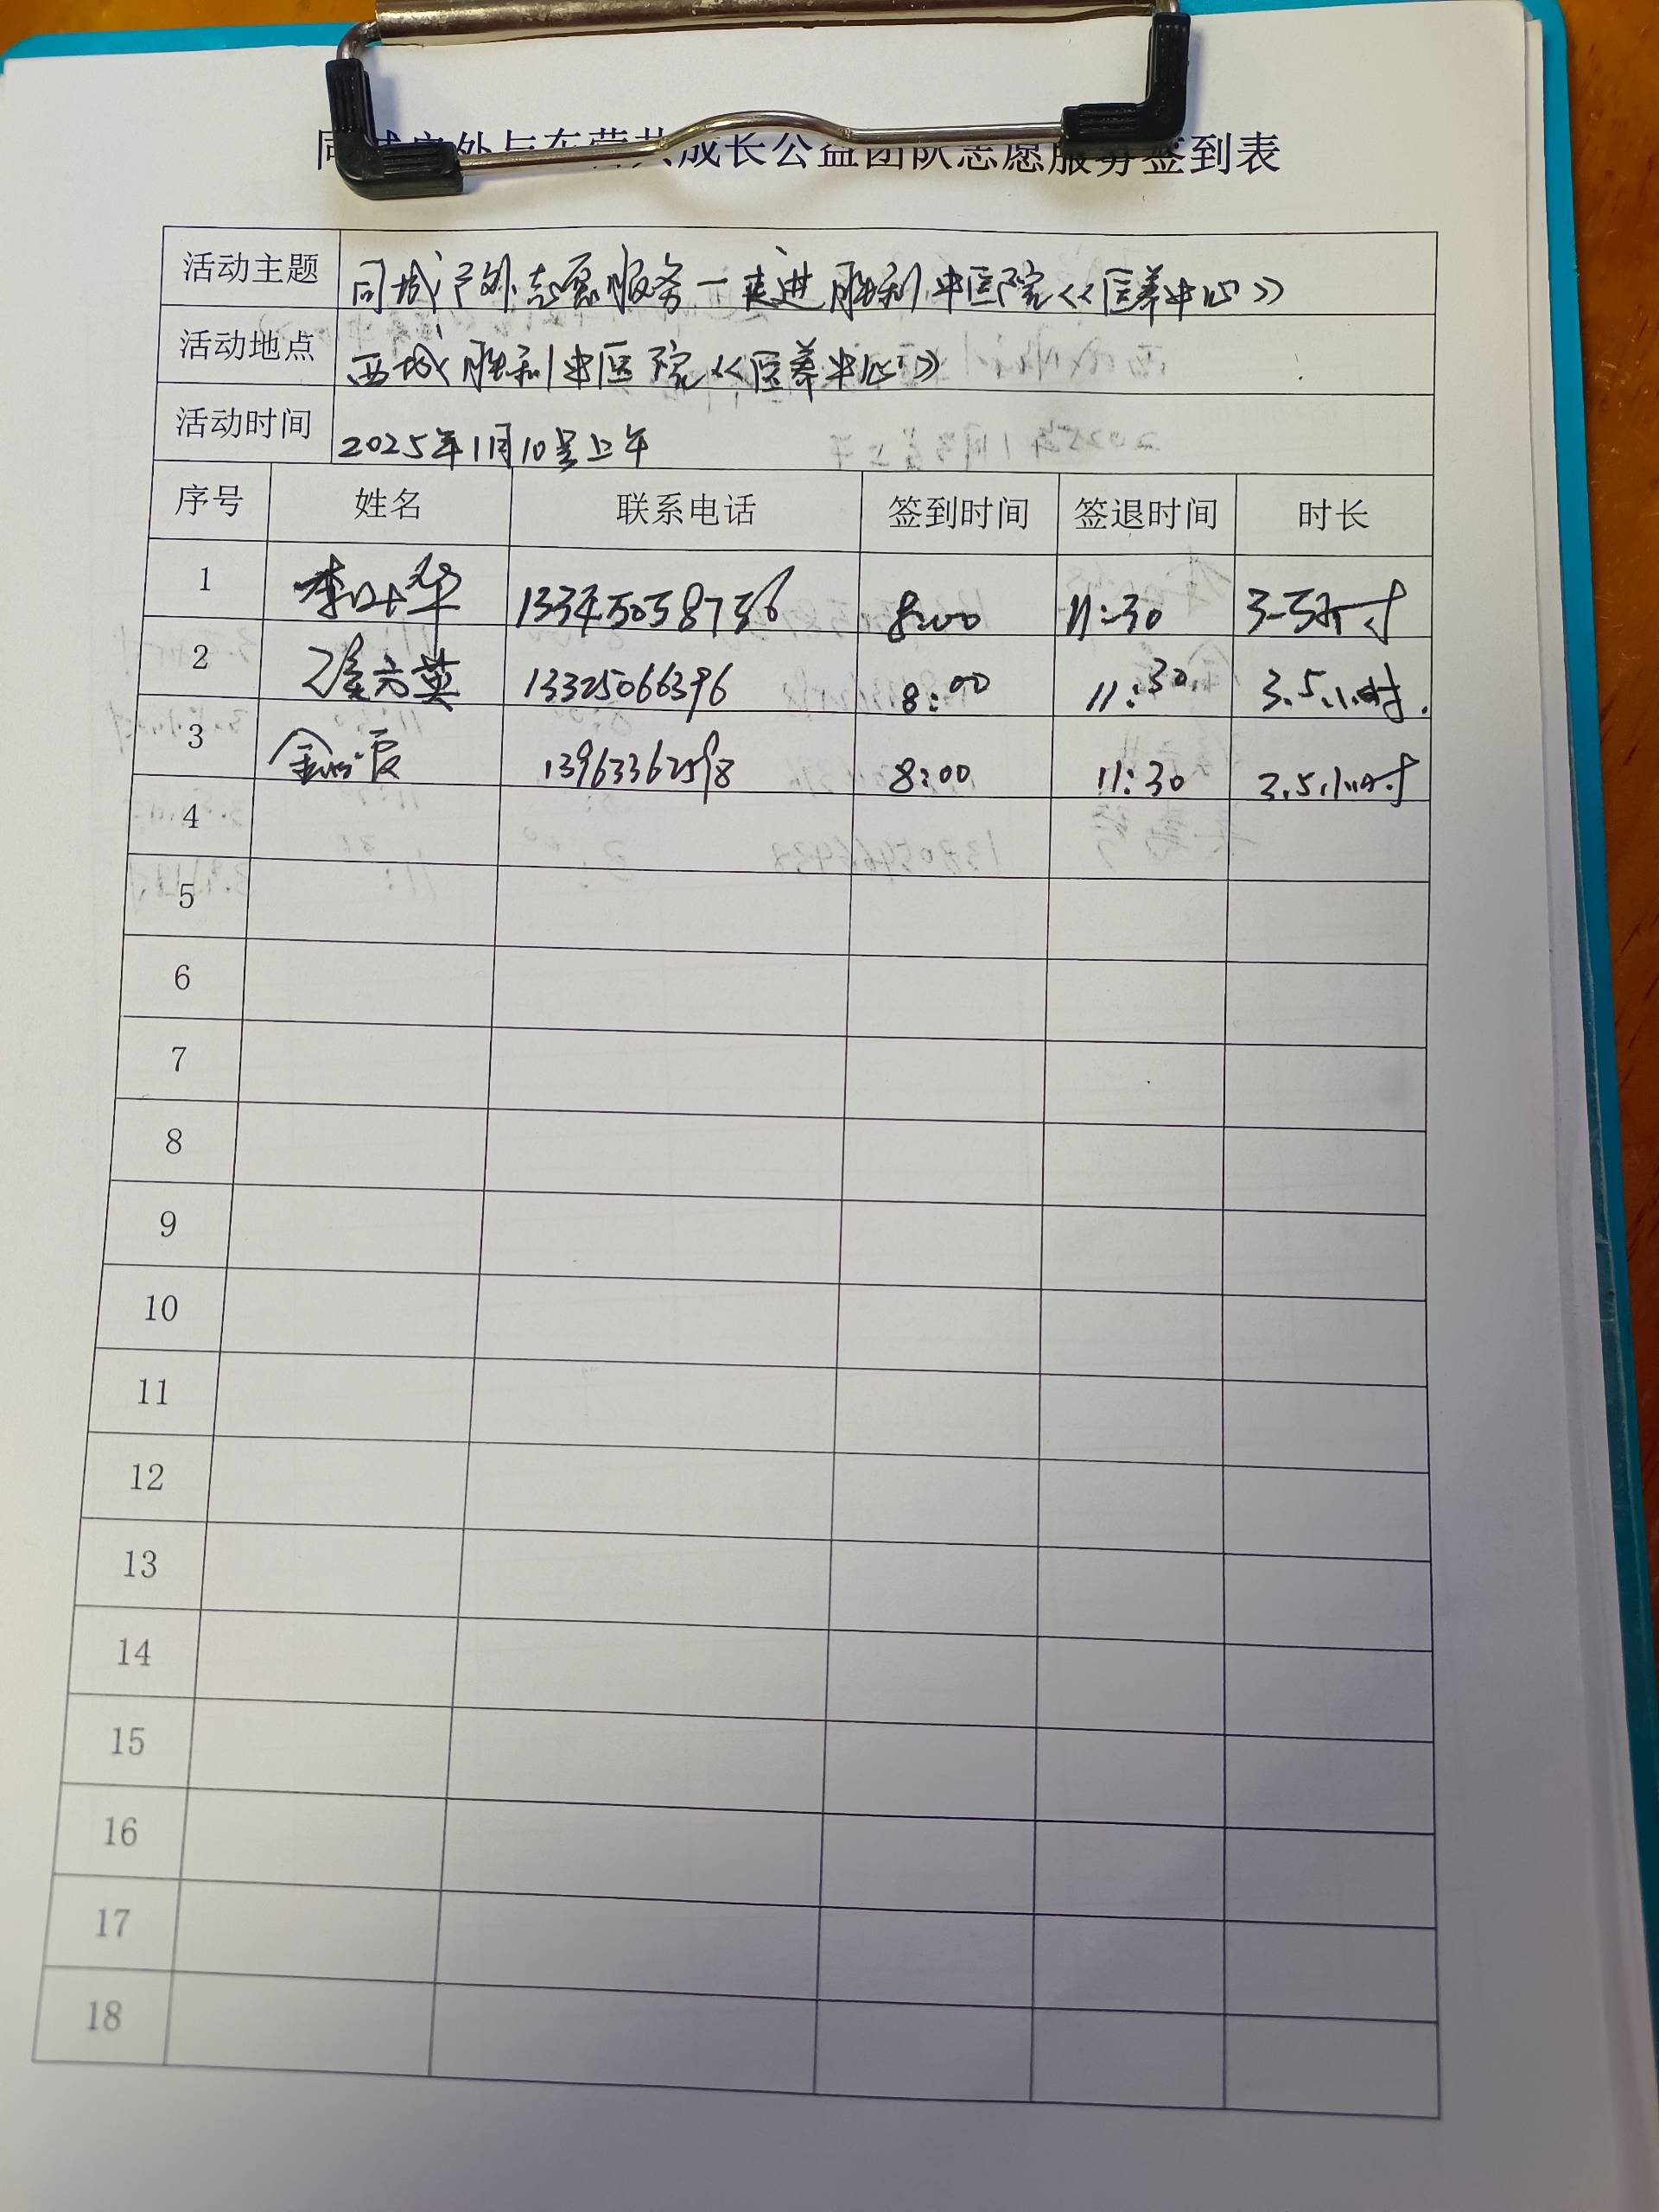 同城户外与东营共成长公益团队志愿服务签到表
活动主题 同城户外志愿服务一走进胜利中医院<<医养中心>>
活动地点 西城胜利中医院<<医养中心>>
活动时间 2025年1月10号上午
序号 姓名 联系电话 签到时间 签退时间 时长
1 李叶华 13345058756 8:00 11:30 3.5小时
2 13325066396 8:00 11:30 3.5小时.
3 13963362598 8:00 11:30 3.5小时
4
5
6
7
8
9
10
11
12
13
14
15
16
17
18